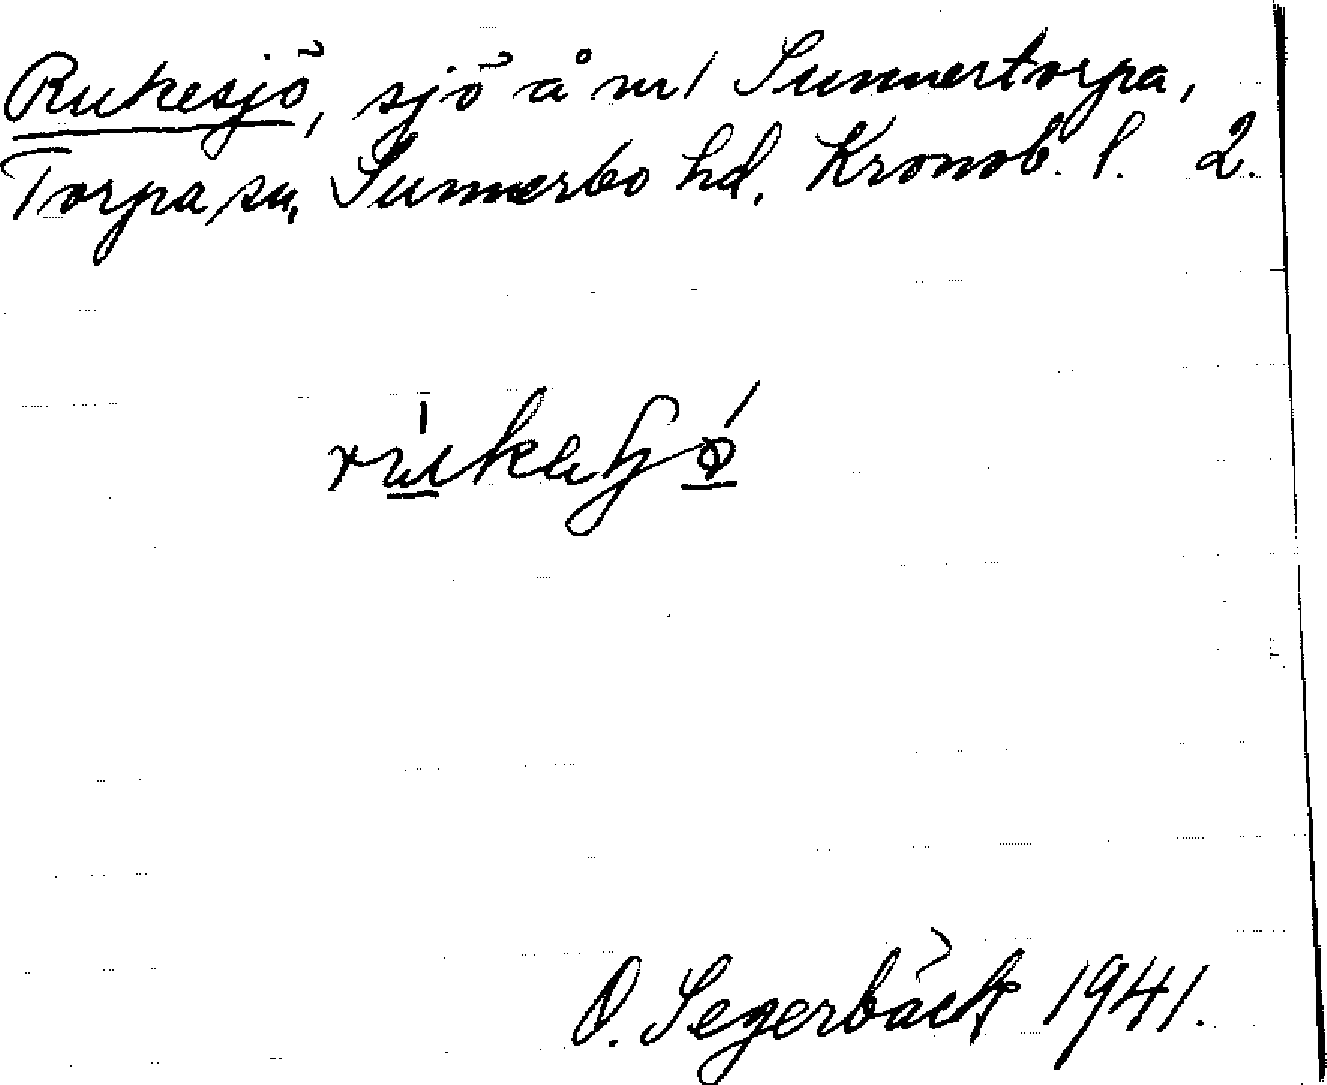 Rukesjö, sjö å nr 1 Sunnertorpa,
Torpa sn, Sunnerbo hd, Kronob. l. 2.
O. Segerbäck 1941.